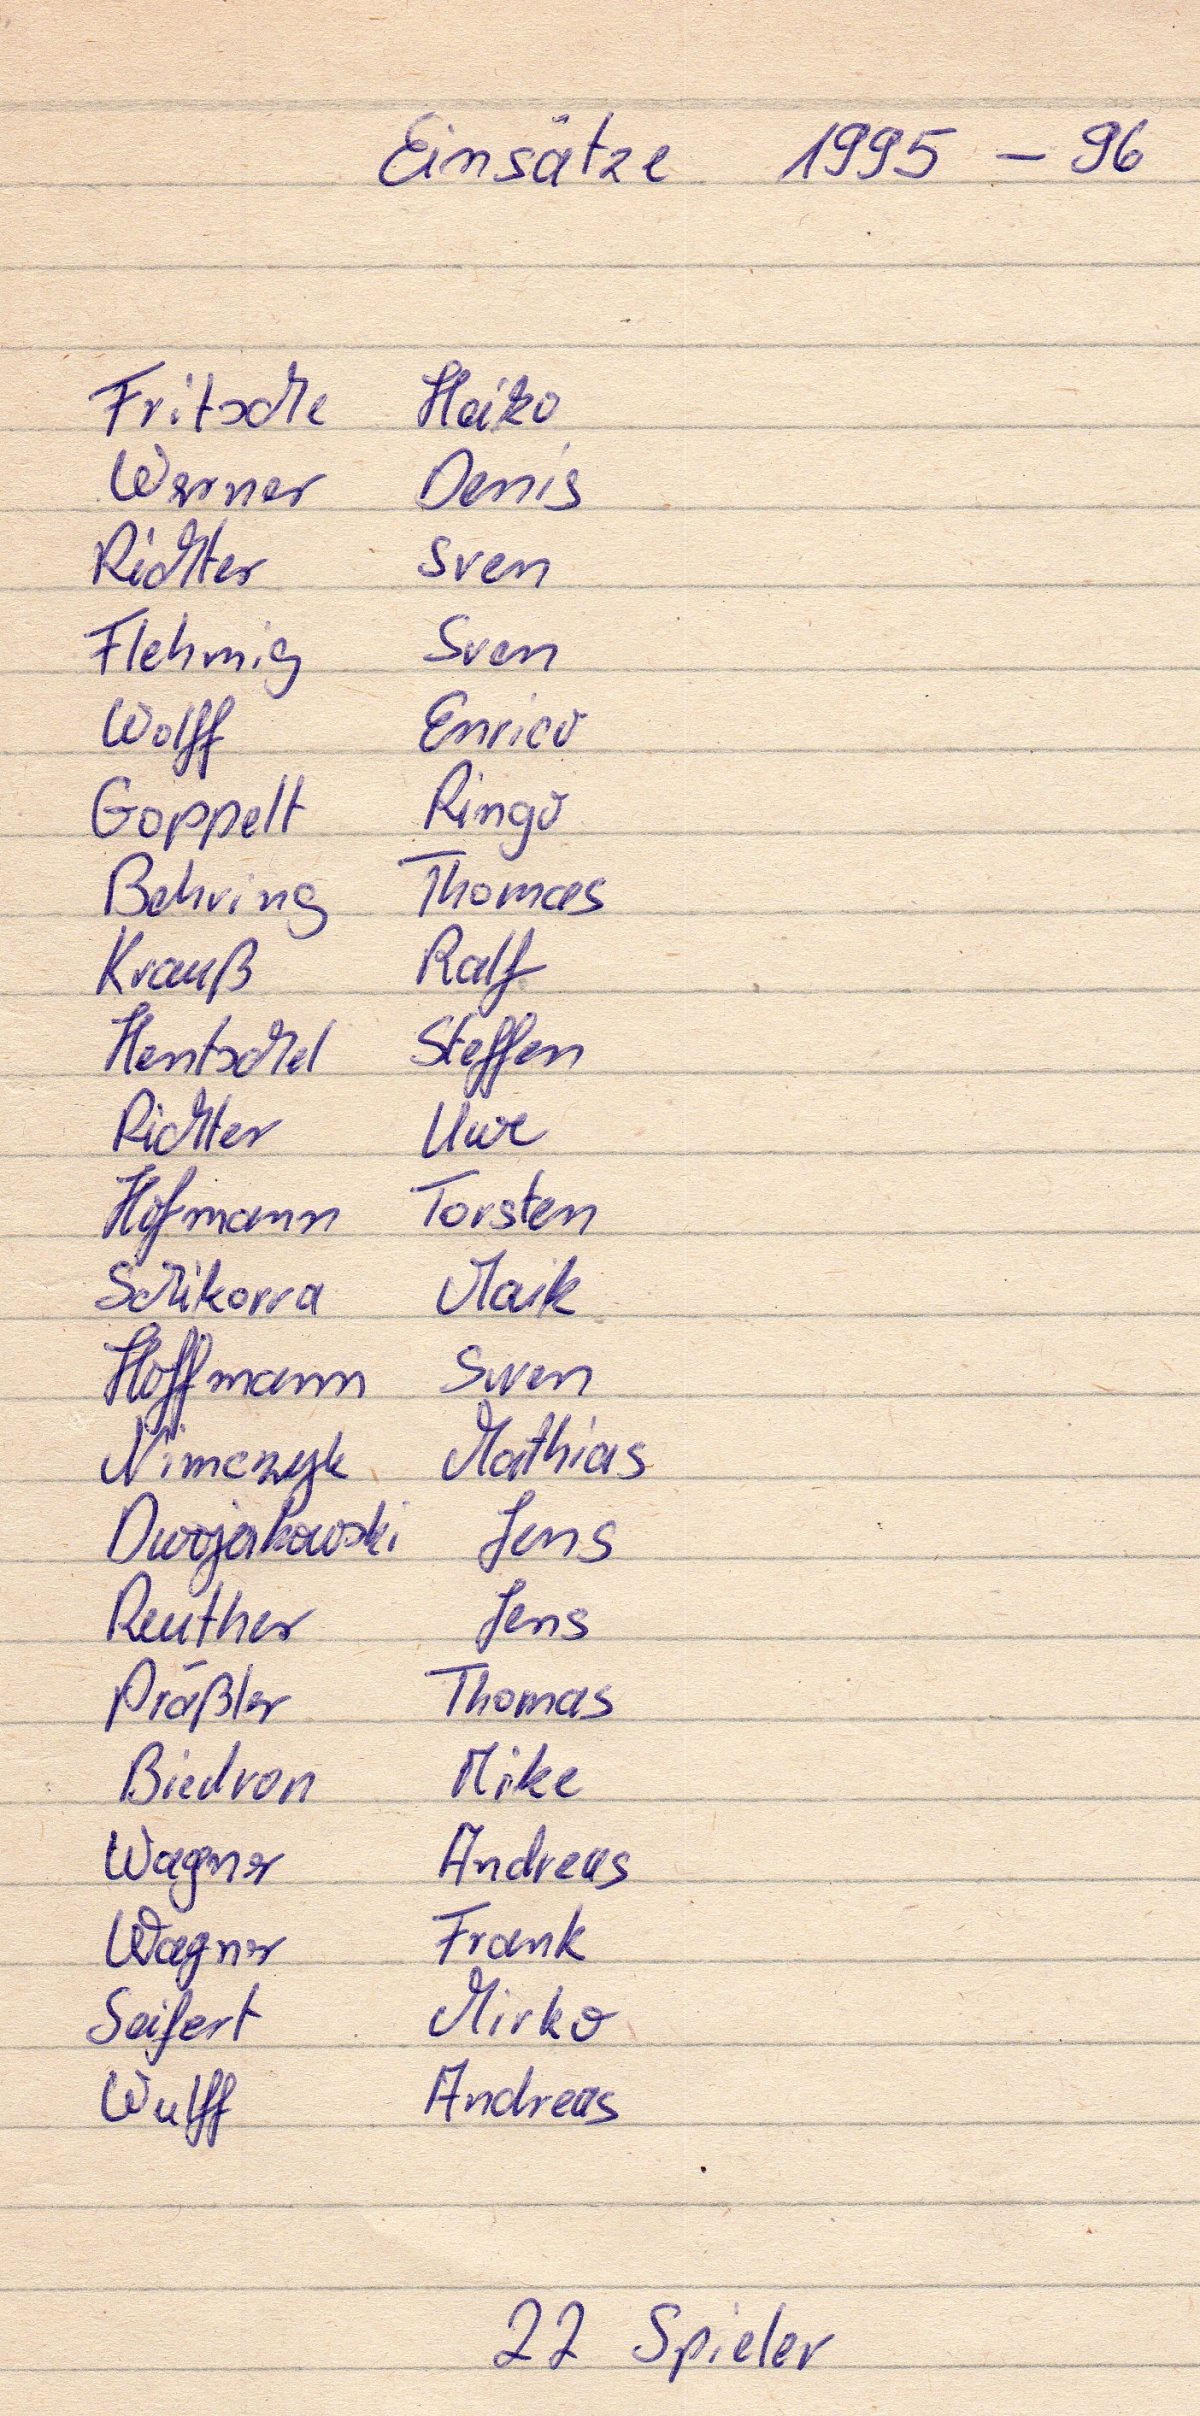 Einsätze 1995 - 96
Fritsche Heiko
Werner Denis
Richter Sven
Flehmig Sven
Wolff Enrico
Goppelt Ringo
Behring Thomas
Krauß Ralf
Hentschel Steffen
Richter Uwe
Hofmann Torsten
Schikorra Maik
Hoffmann Swen
Nimczyk Mathias
Dwojakowski Jens
Reuther Jens
Präßler Thomas
Biedron Mike
Wagner Andreas
Wagner Frank
Seifert Mirko
Wulff Andreas
22 Spieler